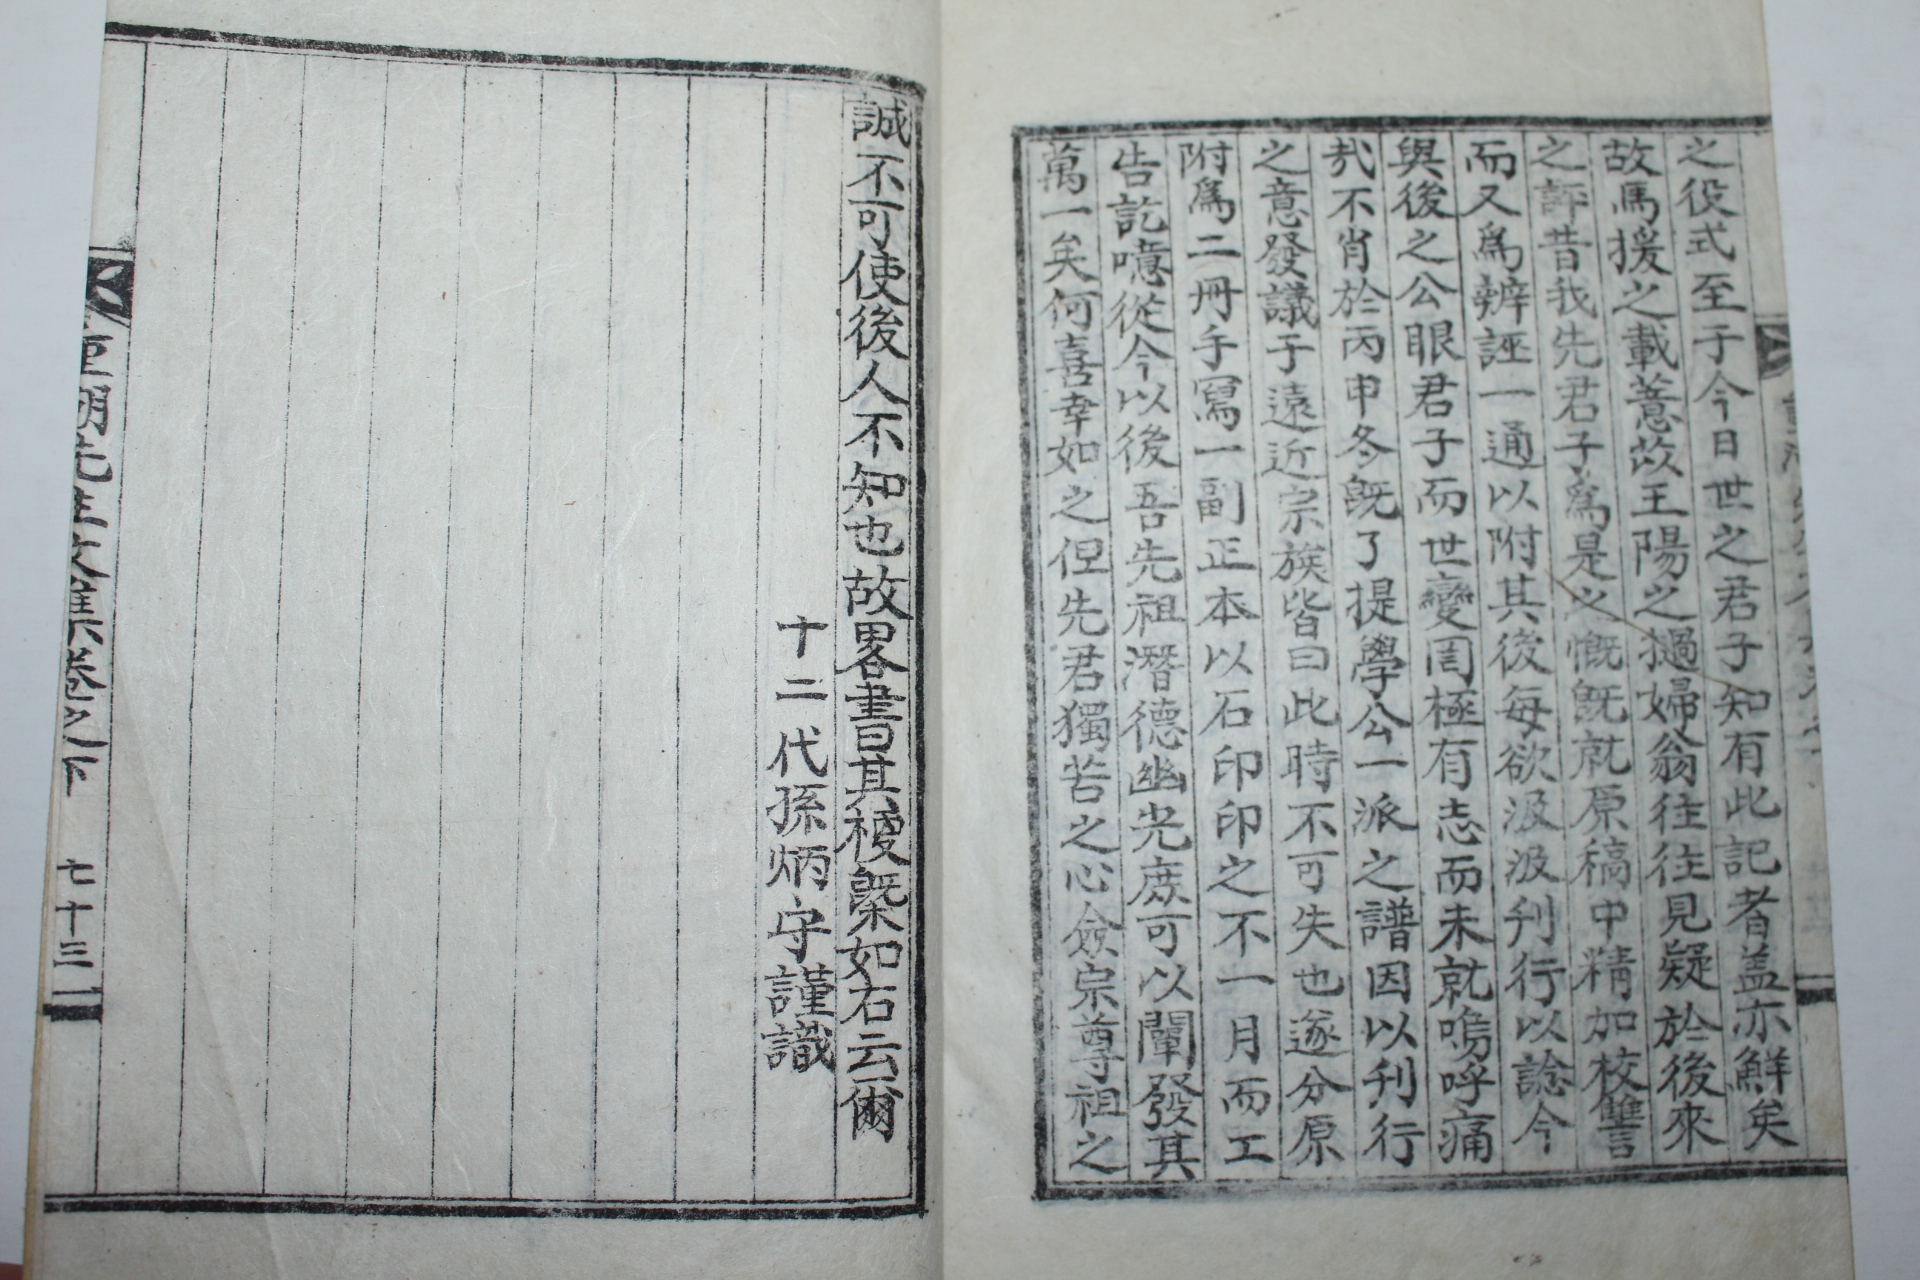 之役式至于今日世之君子知有此記者盖亦鮮矣
故馬援之載薏苡王陽之撾婦翁往往見疑於後來
之評昔我先君子爲是之慨既就原稿中精加校讐
而又爲辨誣一通以附其後每欲汲汲刋行以諗今
與後之公眼君子而世變罔極有志而未就嗚呼痛
㢤不肖於丙申冬既了提學公一派之譜因以刋行
之意發議于遠近宗族皆曰此時不可失也遂分原
附爲二冊手寫一副正本以石印印之不一月而工
告訖噫從今以後吾先祖潛德幽光庶可以闡發其
萬一矣何喜幸如之但先君獨苦之心僉宗尊祖之
誠不可使後人不知也故畧書其槩如右云爾
十二代孫炳守謹識
湖先生文集卷之下 七十三